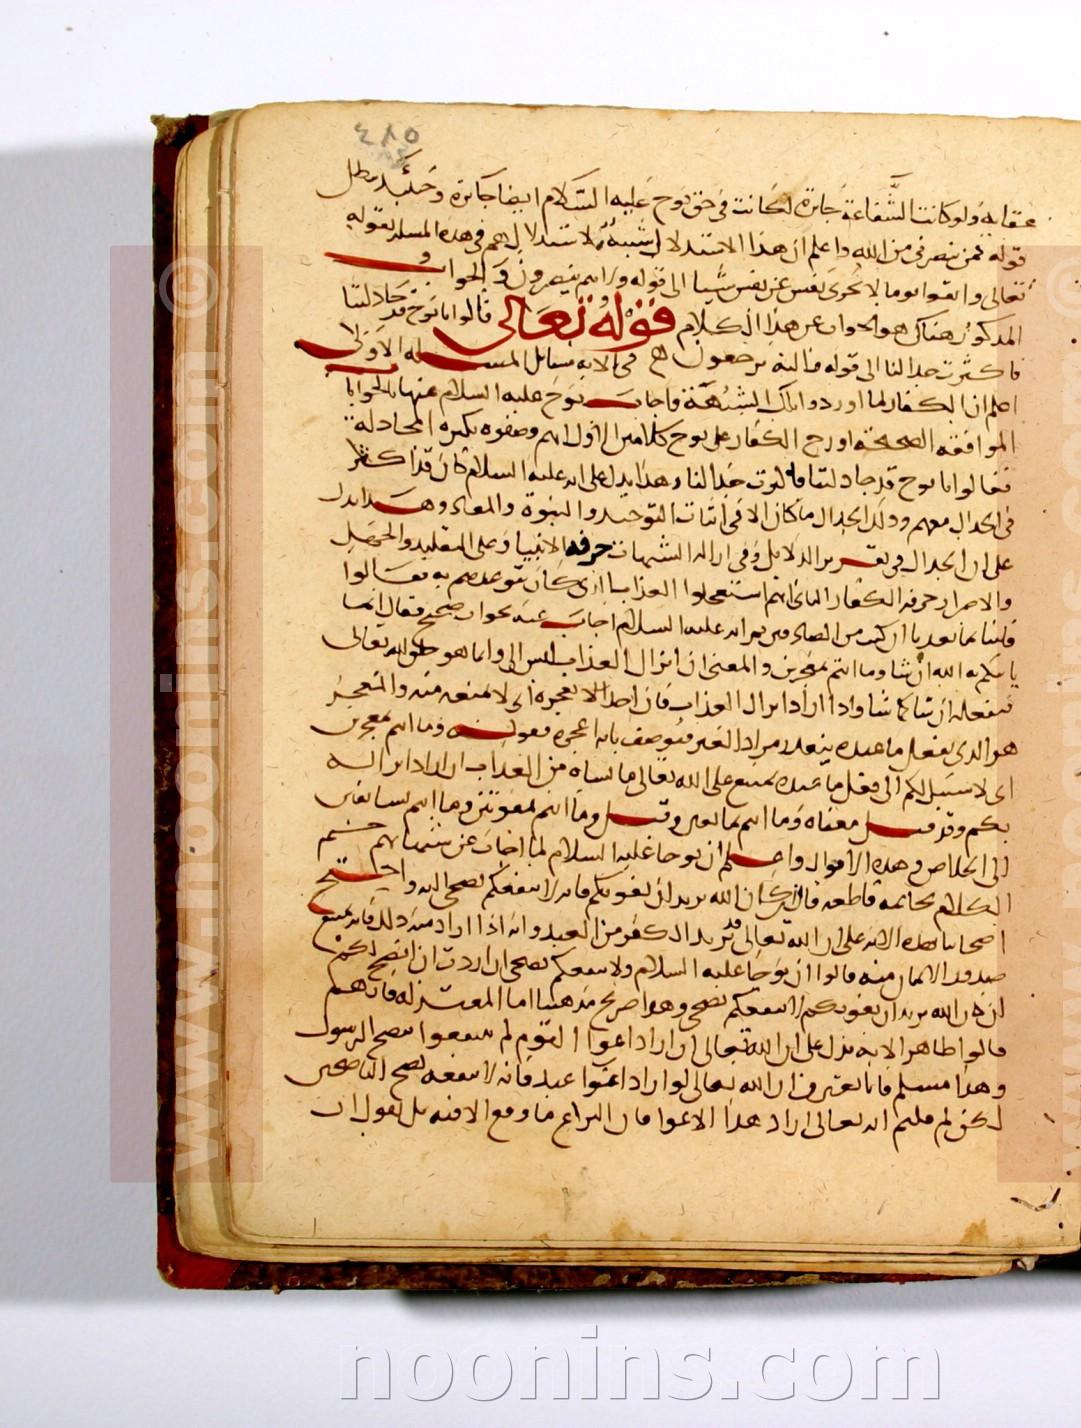 ٤٨٥
عقابه ولو كانت الشفاعة جائزة لكانت في حق نوح عليه السلام ايضا جائزة وحينئذ يبطل
قوله فمن ينصرني من الله واعلم ان هذا الاستدلال شبيه باستدلالهم في هذه المسلة بقوله
تعالى واتقوا يوما لا تجزى نفس عن نفس شيا الى قوله ولا هم ينصرون والجواب
المذكور هناك هو الجواب عن هذا الكلام قوله تعالى قالوا يا نوح قد جادلتنا
فاكثرت جدالنا الى قوله واليه ترجعون في الاية مسائل المسلة الاولى
اعلم ان الكفار لما اوردوا تلك الشبهة فاجاب نوح عليه السلام عنها بالجوابات
الموافقة الصحيحة اورد الكفار على نوح كلامين الاول انهم وصفوه بكثرة المجادلة
فقالوا يا نوح قد جادلتنا فاكثرت جدالنا وهذا يدل على انه عليه السلام كان قد اكثر
في الجدال معهم وذلك الجدال ما كان الا في اثبات التوحيد والنبوة والمعاد وهذا يدل
على ان الجدال في تقرير الدلايل وفي ازالة الشبهات حرفة الانبيا وعلى التقليد والجهل
والاصرار حرفة الكفار الثاني انهم استعجلوا العذاب الذي كان يتوعدهم به فقالوا
فاتنا بما تعدنا ان كنت من الصادقين ثم انه عليه السلام اجاب عنه بجواب صحيح فقال انما
ياتيكم به الله ان شا وما انتم بمعجزين والمعنى ان انزال العذاب ليس الي وانما هو خلق الله تعالى
فيفعله ان شا كما شا واذا اراد انزال العذاب فان احدا لا يعجزه اي لا يمنعه منه والمعجز
هو الذي يفعل ما عنده يتعذر مراد الغير فيوصف بانه اعجزه فقوله وما انتم بمعجزين
اي لا سبيل لكم الى فعل ما عنده يمتنع على الله تعالى ما يشاه من العذاب ان اراد انزاله
بكم وقد قيل معناه وما انتم بمانعين وقيل وما انتم بمفوتين وما انتم بسابقين
الى الخلاص وهذه الاقوال واعلم ان نوحا عليه السلام لما اجاب عن شبهاتهم ختم
الكلام بخاتمة قاطعة فقال ان كان الله يريد ان يغويكم فانه لا ينفعكم نصحي البتة واحتج
اصحابنا بهذه الاية على ان الله تعالى قد يريد الكفر من العبد وانه اذا اراد منه ذلك فانه يمتنع
صدور الايمان منه قالوا ان نوحا عليه السلام ولا ينفعكم نصحي ان اردت ان انصح لكم
ان كان الله يريد ان يغويكم لا ينفعكم نصحي وهذا صريح مذهبنا اما المعتزلة فانهم
قالوا ظاهر الاية يدل على ان الله تعالى ان اراد اغوا القوم لم ينتفعوا بنصح الرسول
وهذا مسلم فانا نعترف ان الله تعالى لو اراد اغوا عبد فانه لا ينفعه نصح الناصحين
لكن لم قلتم انه تعالى اراد هذا الاغوا فان النزاع ما وقع الا فيه بل نقول ان
www.noonins.com ©
www.noonins.com ©
noonins.com